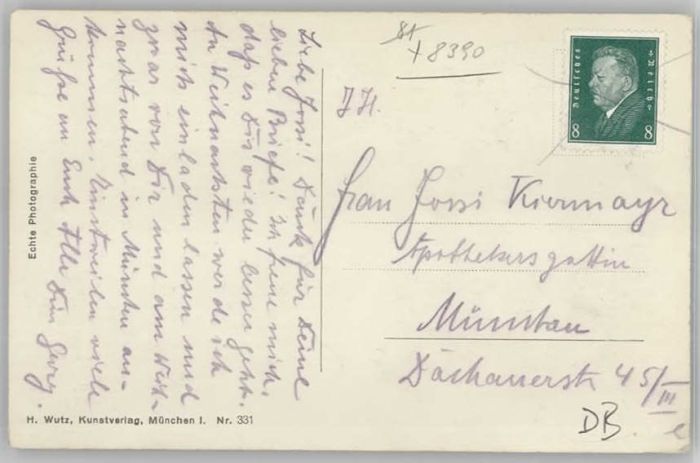 Liebe Jossi! Dank für Deine
lieben Briefe! Ich freue mich,
daß es Dir wieder besser geht.
An Weihnachten werde ich
mich einladen lassen und
zwar von Dir und am Weih-
nachtsabend in München an-
kommen. Einstweilen viele
Grüße an Euch Alle Dein Georg.
Echte Photographie
H. Wutz, Kunstverlag, München I. Nr. 331
81
+ 8390
Deutsches Reich
8 8
Frau Jossi Kiermayr
Apothekersgattin
München
Dachauerstr 45/III
DB